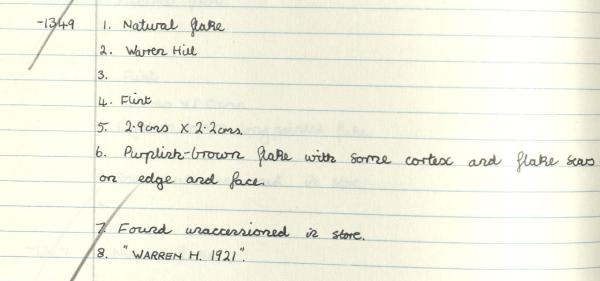 -1349 1. Natural flake
2. Warren Hill
3.
4. Flint
5. 2.9cms X 2.2cms.
6. Purplish-brown flake with some cortex and flake scars
on edge and face.
7. Found unaccessioned in store.
8. "WARREN H. 1921".